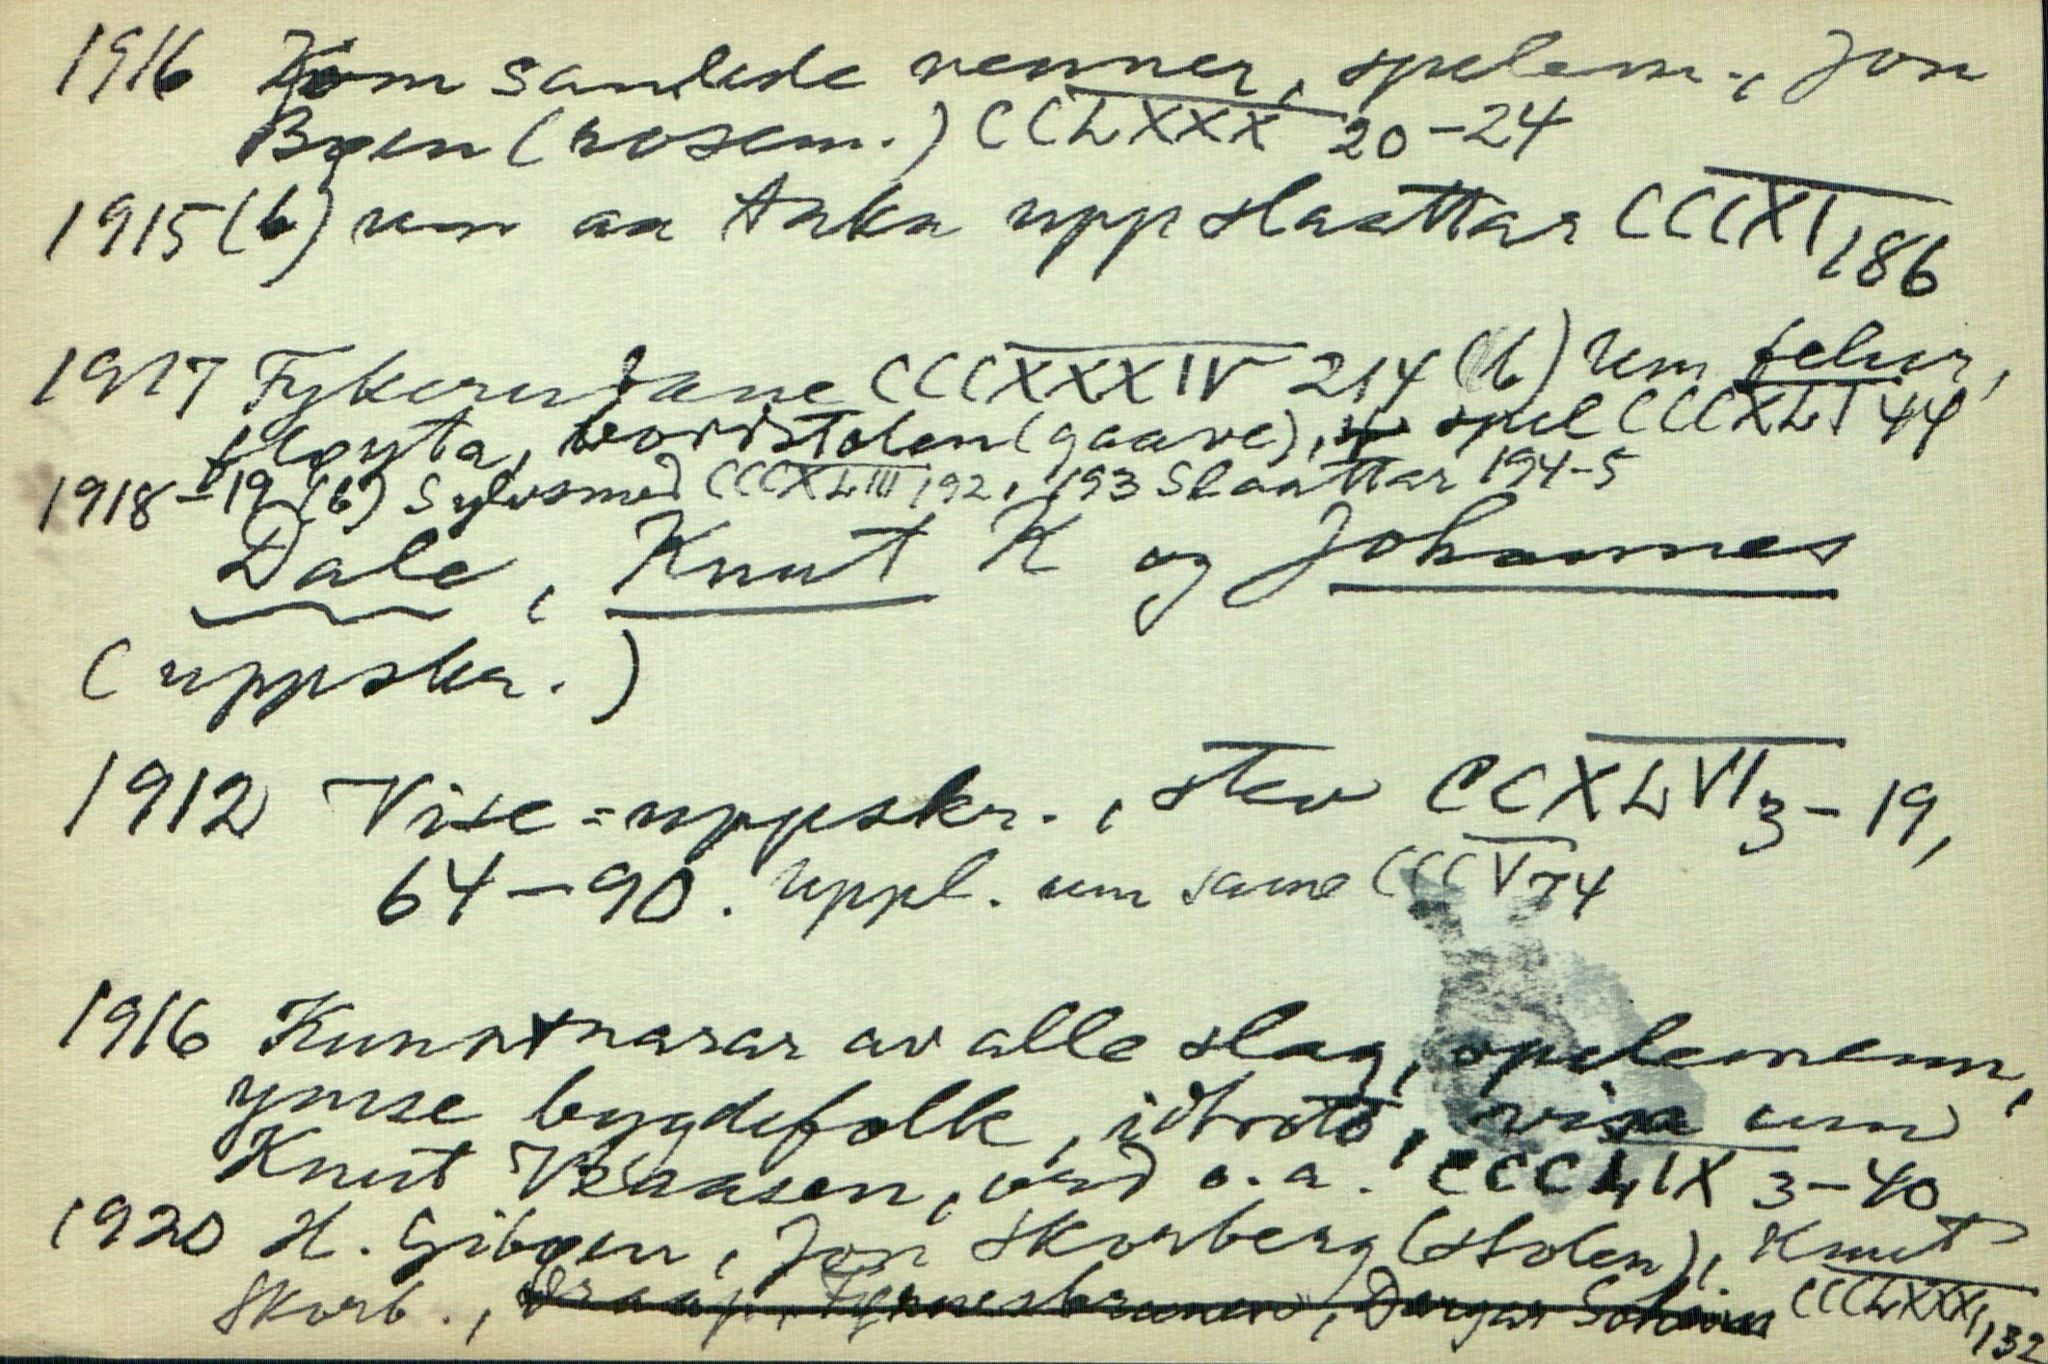 1916 Kom saulede venner, spelem., Jon
Bøen (rosem.) CCLXXX 20-24
1915 (b) um aa taka upp slaattar CCCXI 186
1917 Fykerudane CCCXXXIV 214 (b) Um felur,
fløyta, bordstolen (gaave), spel CCCXLI 44
1918-19 (b) Sylvsmed CCCXLIII 192, 193 Slaattar 194-5
Dale, Knut K og Johannes
(uppskr.)
1912 Vise=uppskr., stev CCXLVI 3-19,
64-90. Uppl. um same CCCV 74
1916 Kunstnarar av alle slag, spelemenn,
ymse bygdefolk, idrott, visa um
Knut Vraasen, ord o.a. CCCLIX 3-40
1920 H. Gibøen, Jon Skorberg (stolen), Knut
Skorb., CCCLXXXI 132